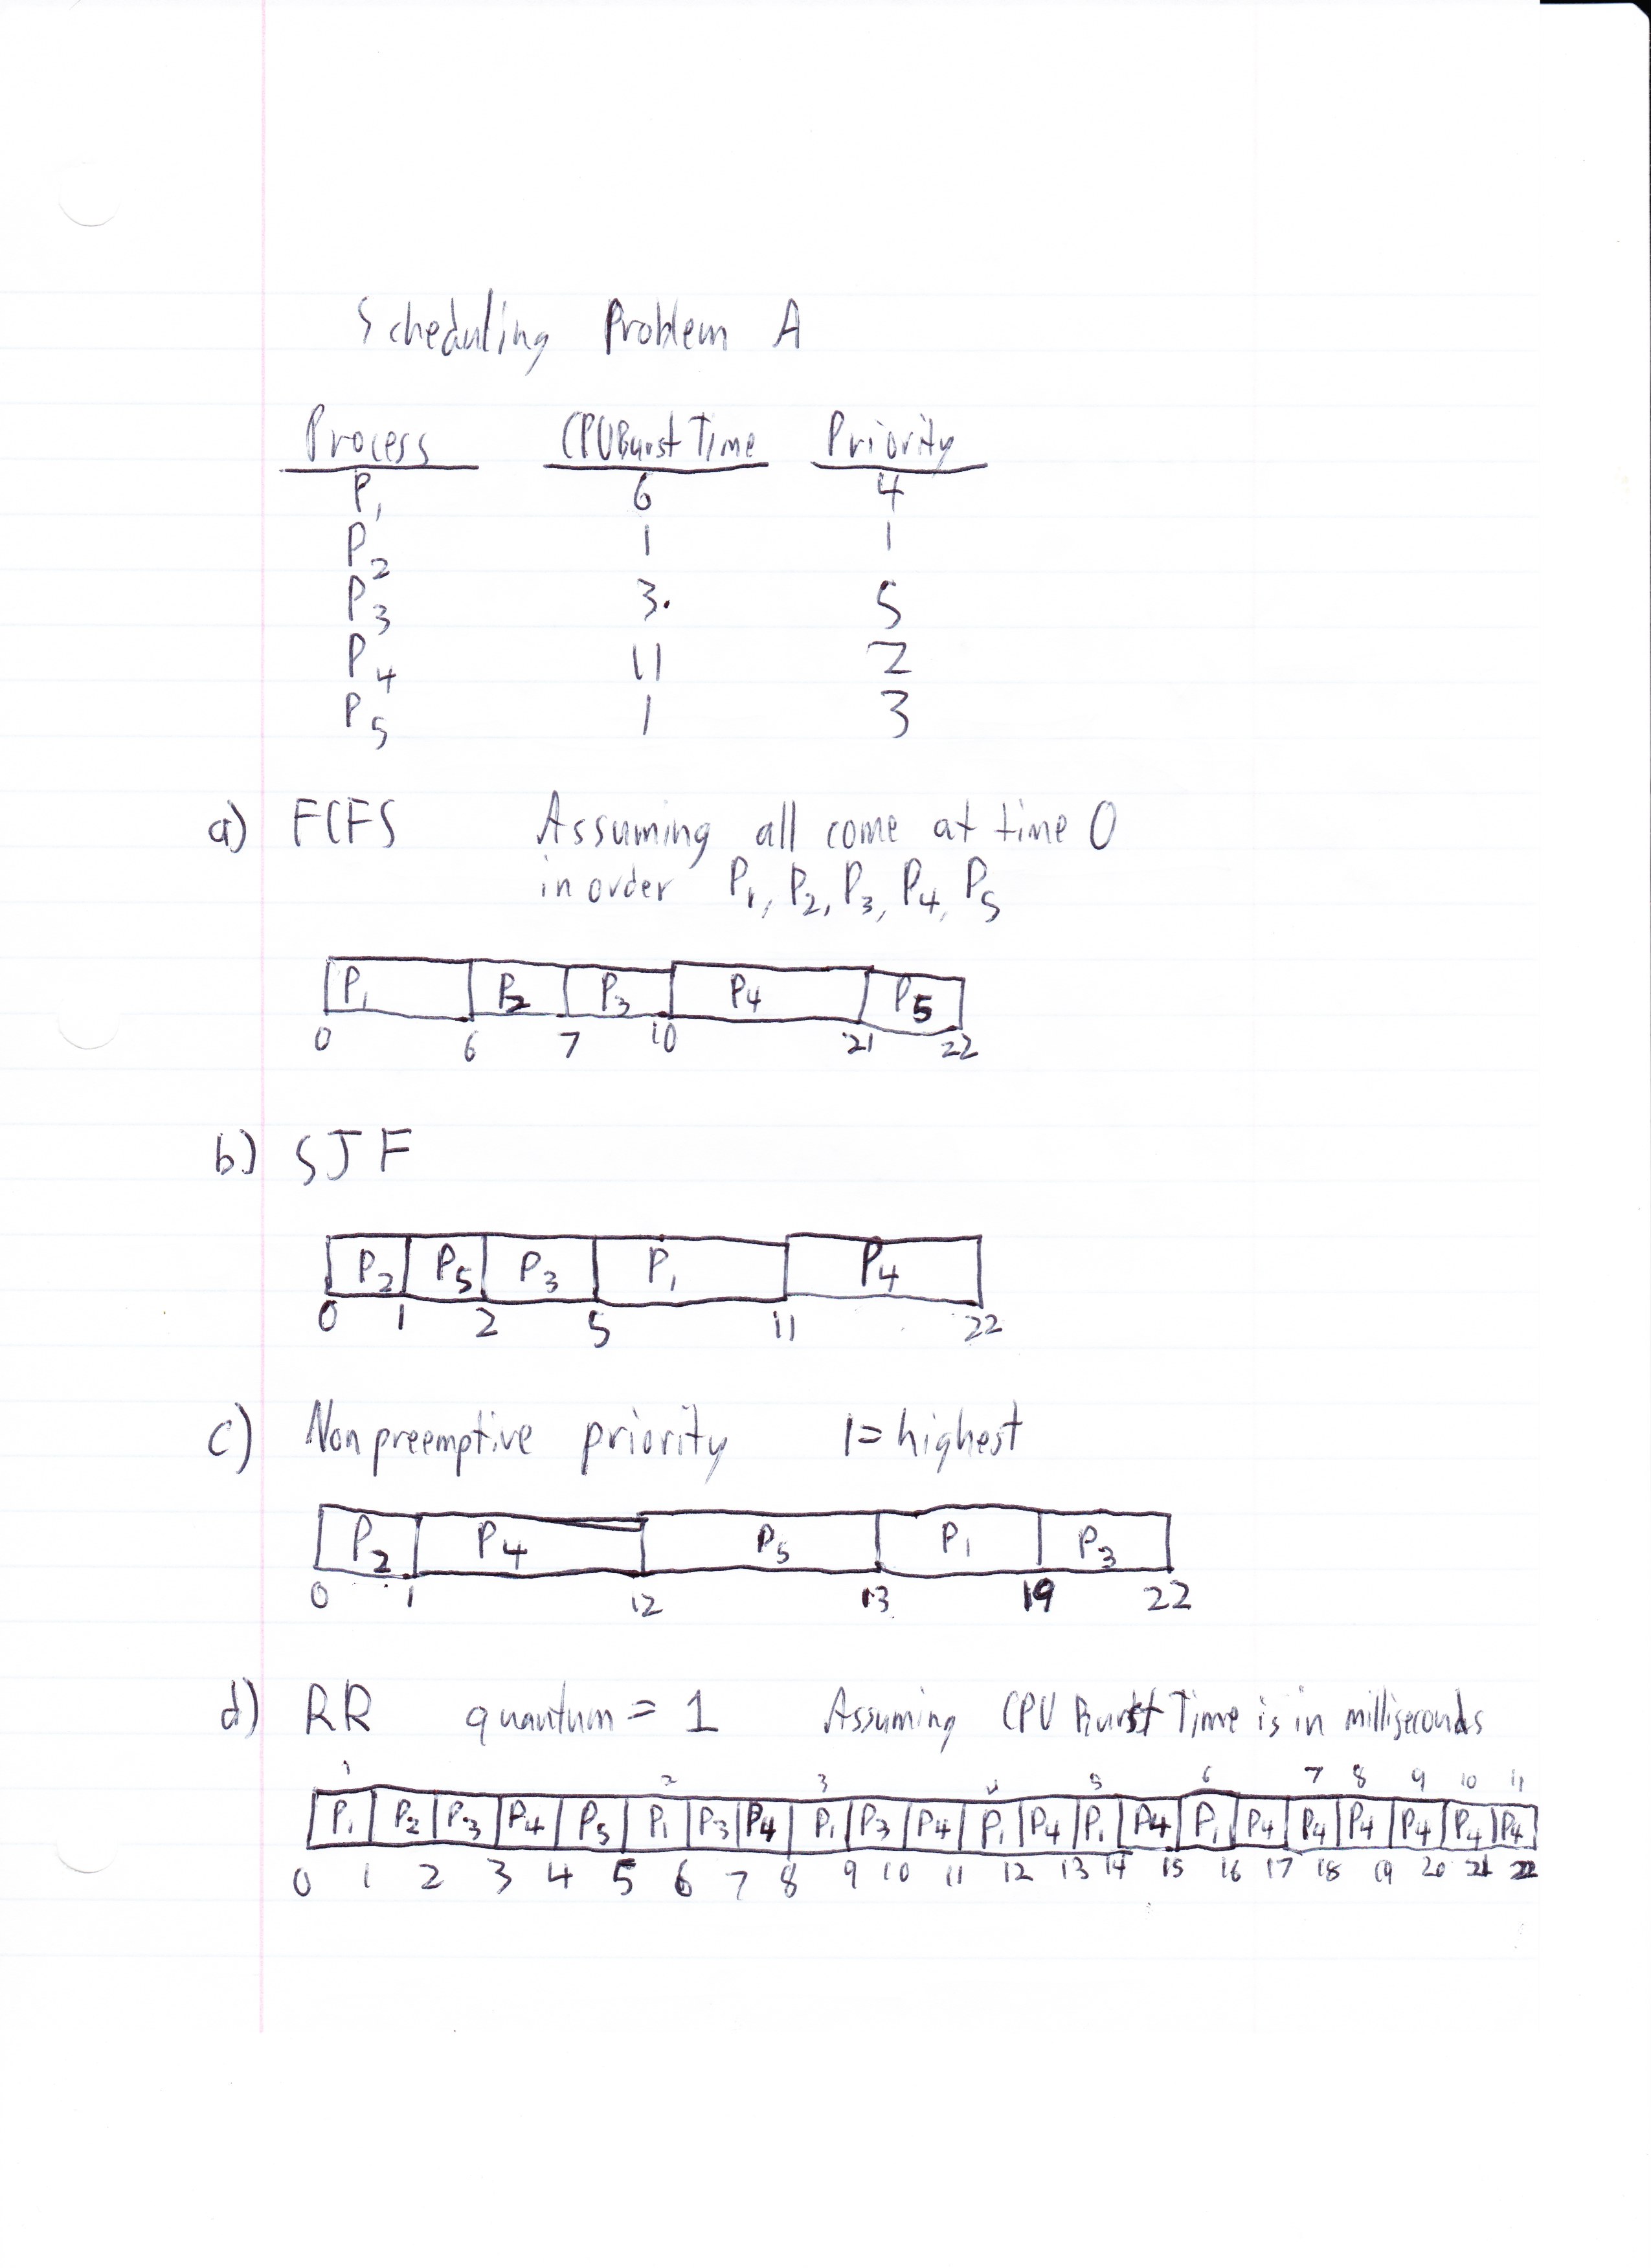 Scheduling Problem A
Process CPU Burst Time Priority
P1 6 4
P2 1 1
P3 3. 5
P4 11 2
P5 1 3
a) FCFS Assuming all come at time 0
in order P1, P2, P3, P4, P5
P1 P2 P3 P4 P5
0 6 7 10 21 22
b) SJF
P2 P5 P3 P1 P4
0 1 2 5 11 22
c) Nonpreemptive priority 1=highest
P2 P4 P5 P1 P3
0 1 12 13 19 22
d) RR quantum = 1 Assuming CPU Burst Time is in milliseconds
1 2 3 4 5 6 7 8 9 10 11
P1 P2 P3 P4 P5 P1 P3 P4 P1 P3 P4 P1 P4 P1 P4 P1 P4 P4 P4 P4 P4 P4
0 1 2 3 4 5 6 7 8 9 10 11 12 13 14 15 16 17 18 19 20 21 22